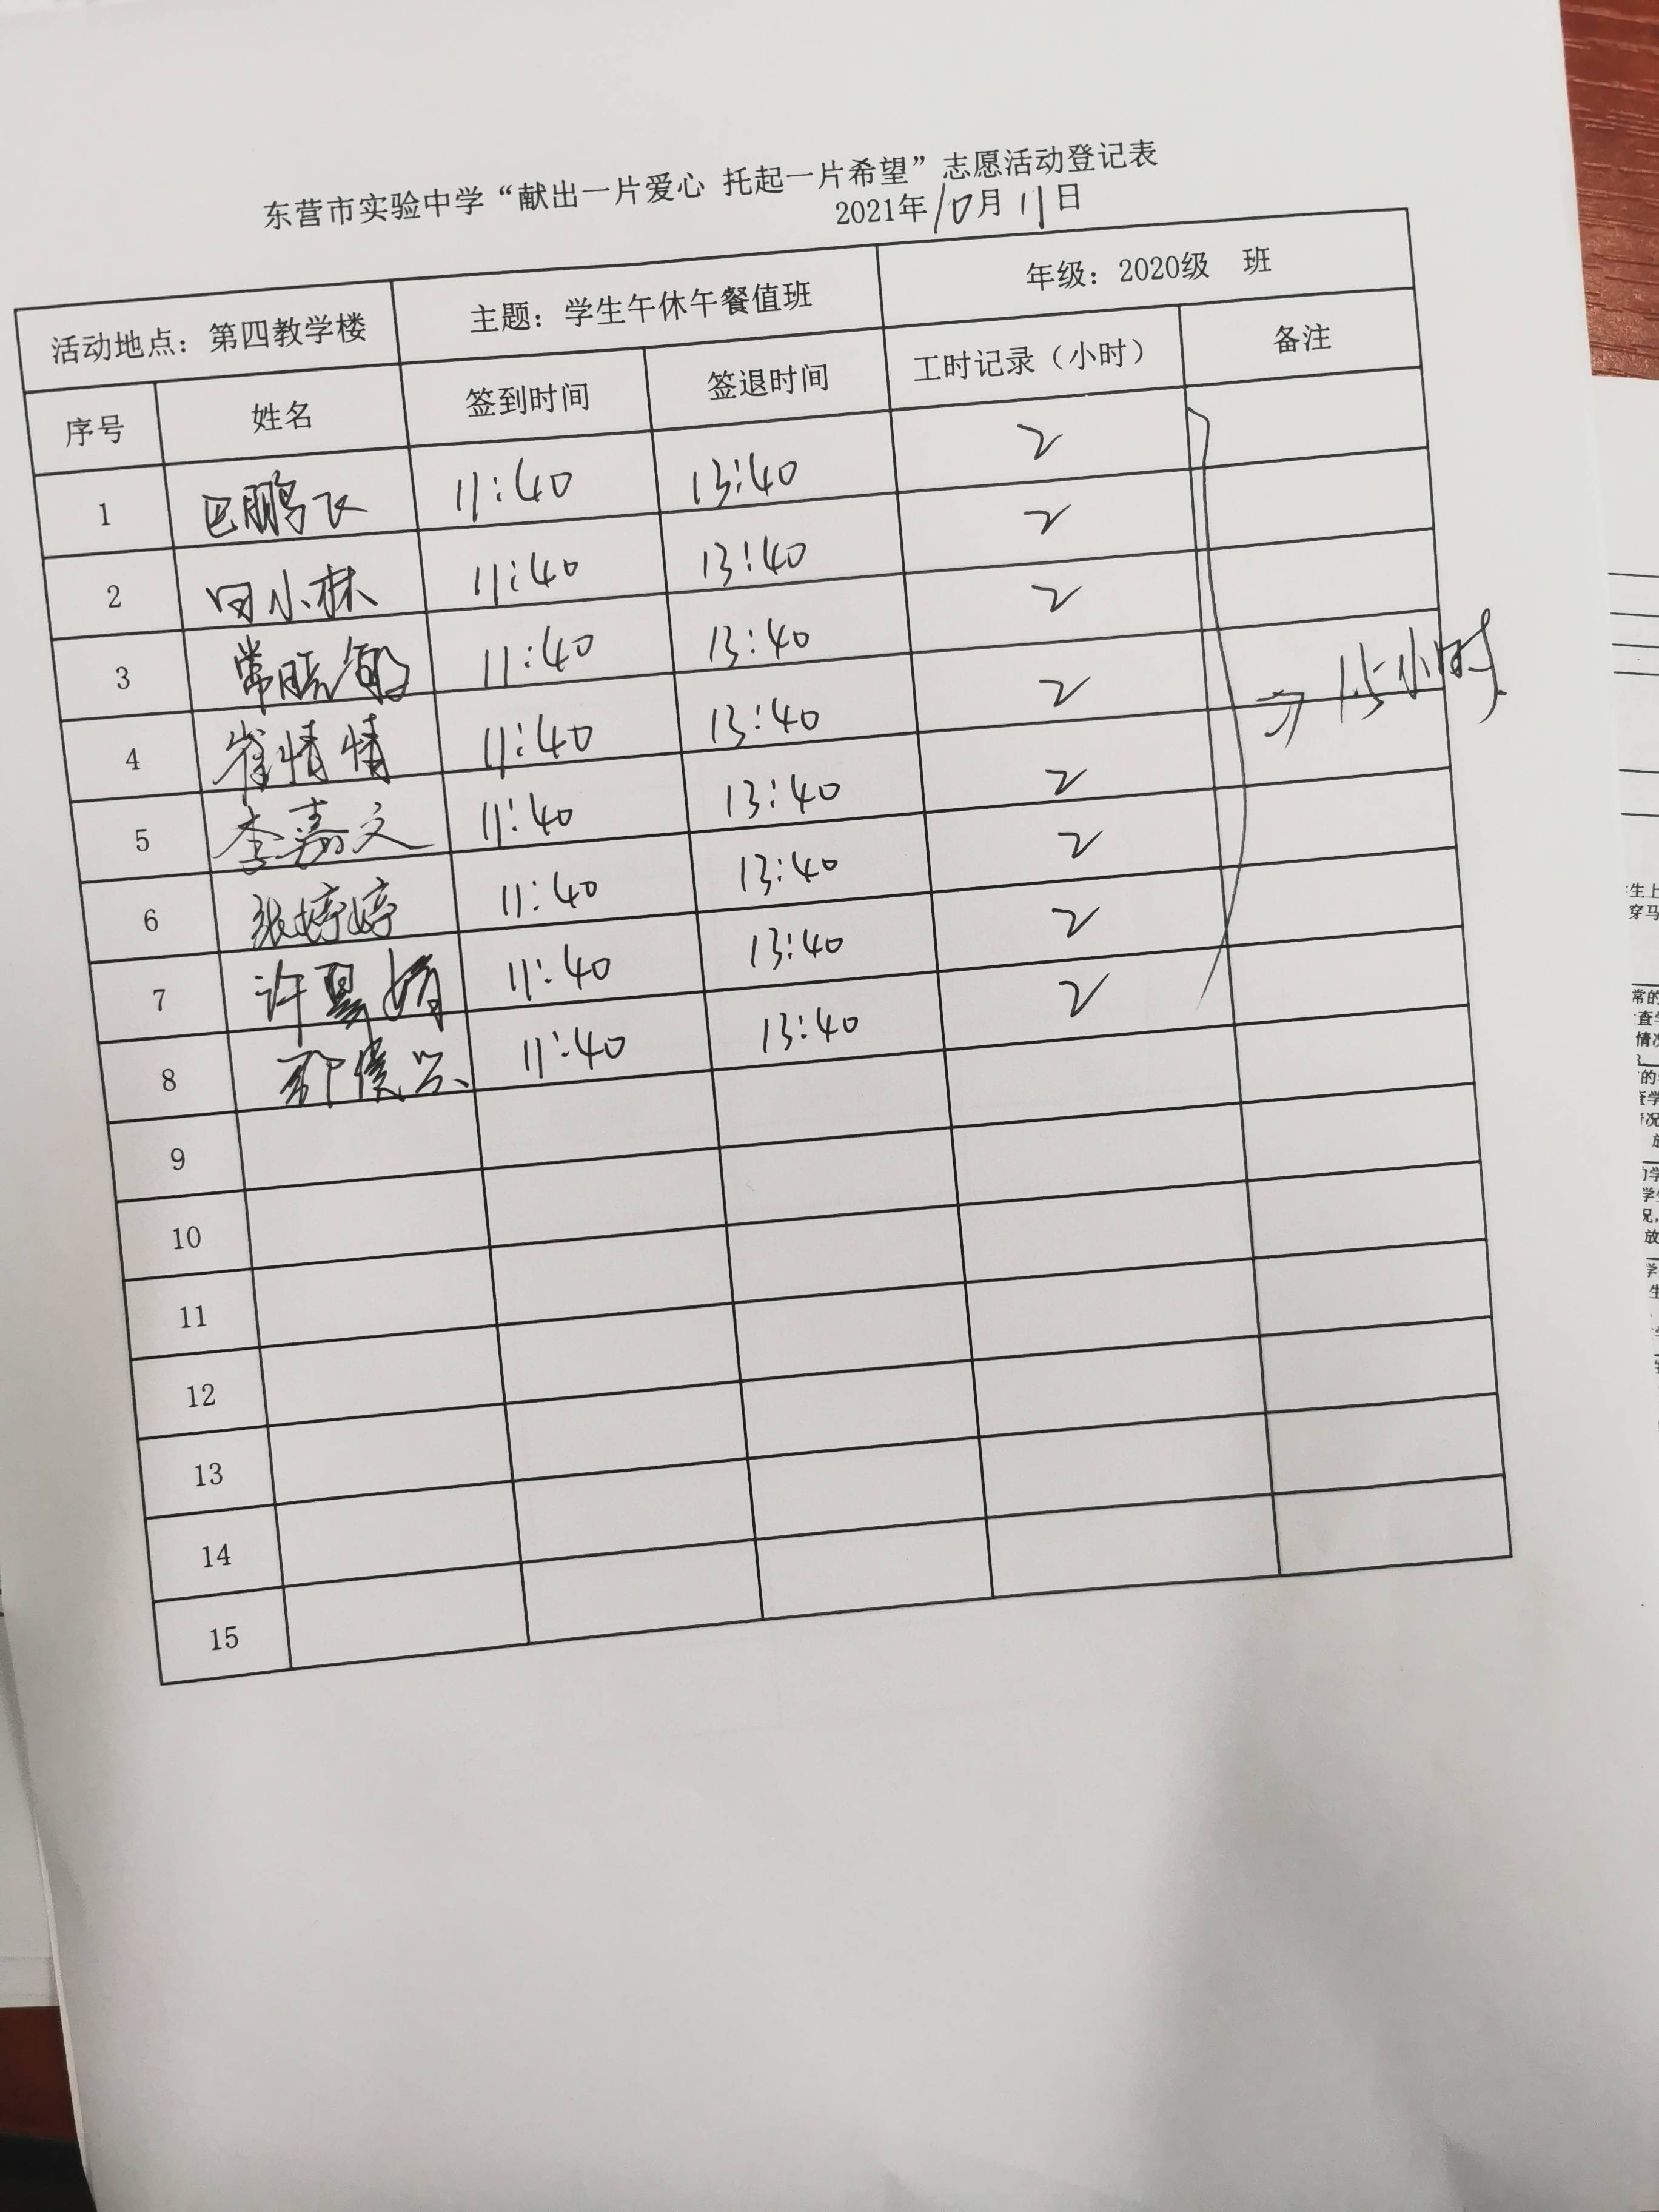 东营市实验中学“献出一片爱心 托起一片希望”志愿活动登记表
2021年10月11日
活动地点：第四教学楼 主题：学生午休午餐值班 年级：2020级 班
序号 姓名 签到时间 签退时间 工时记录（小时） 备注
1 巴鹏飞 11:40 13:40 2
2 田小林 11:40 13:40 2
3 常晓敏 11:40 13:40 2
4 崔情情 11:40 13:40 2
1.5小时
5 李嘉文 11:40 13:40 2
6 张婷婷 11:40 13:40 2
7 许 娟 11:40 13:40 2
8 11:40 13:40 2
9
10
11
12
13
14
15